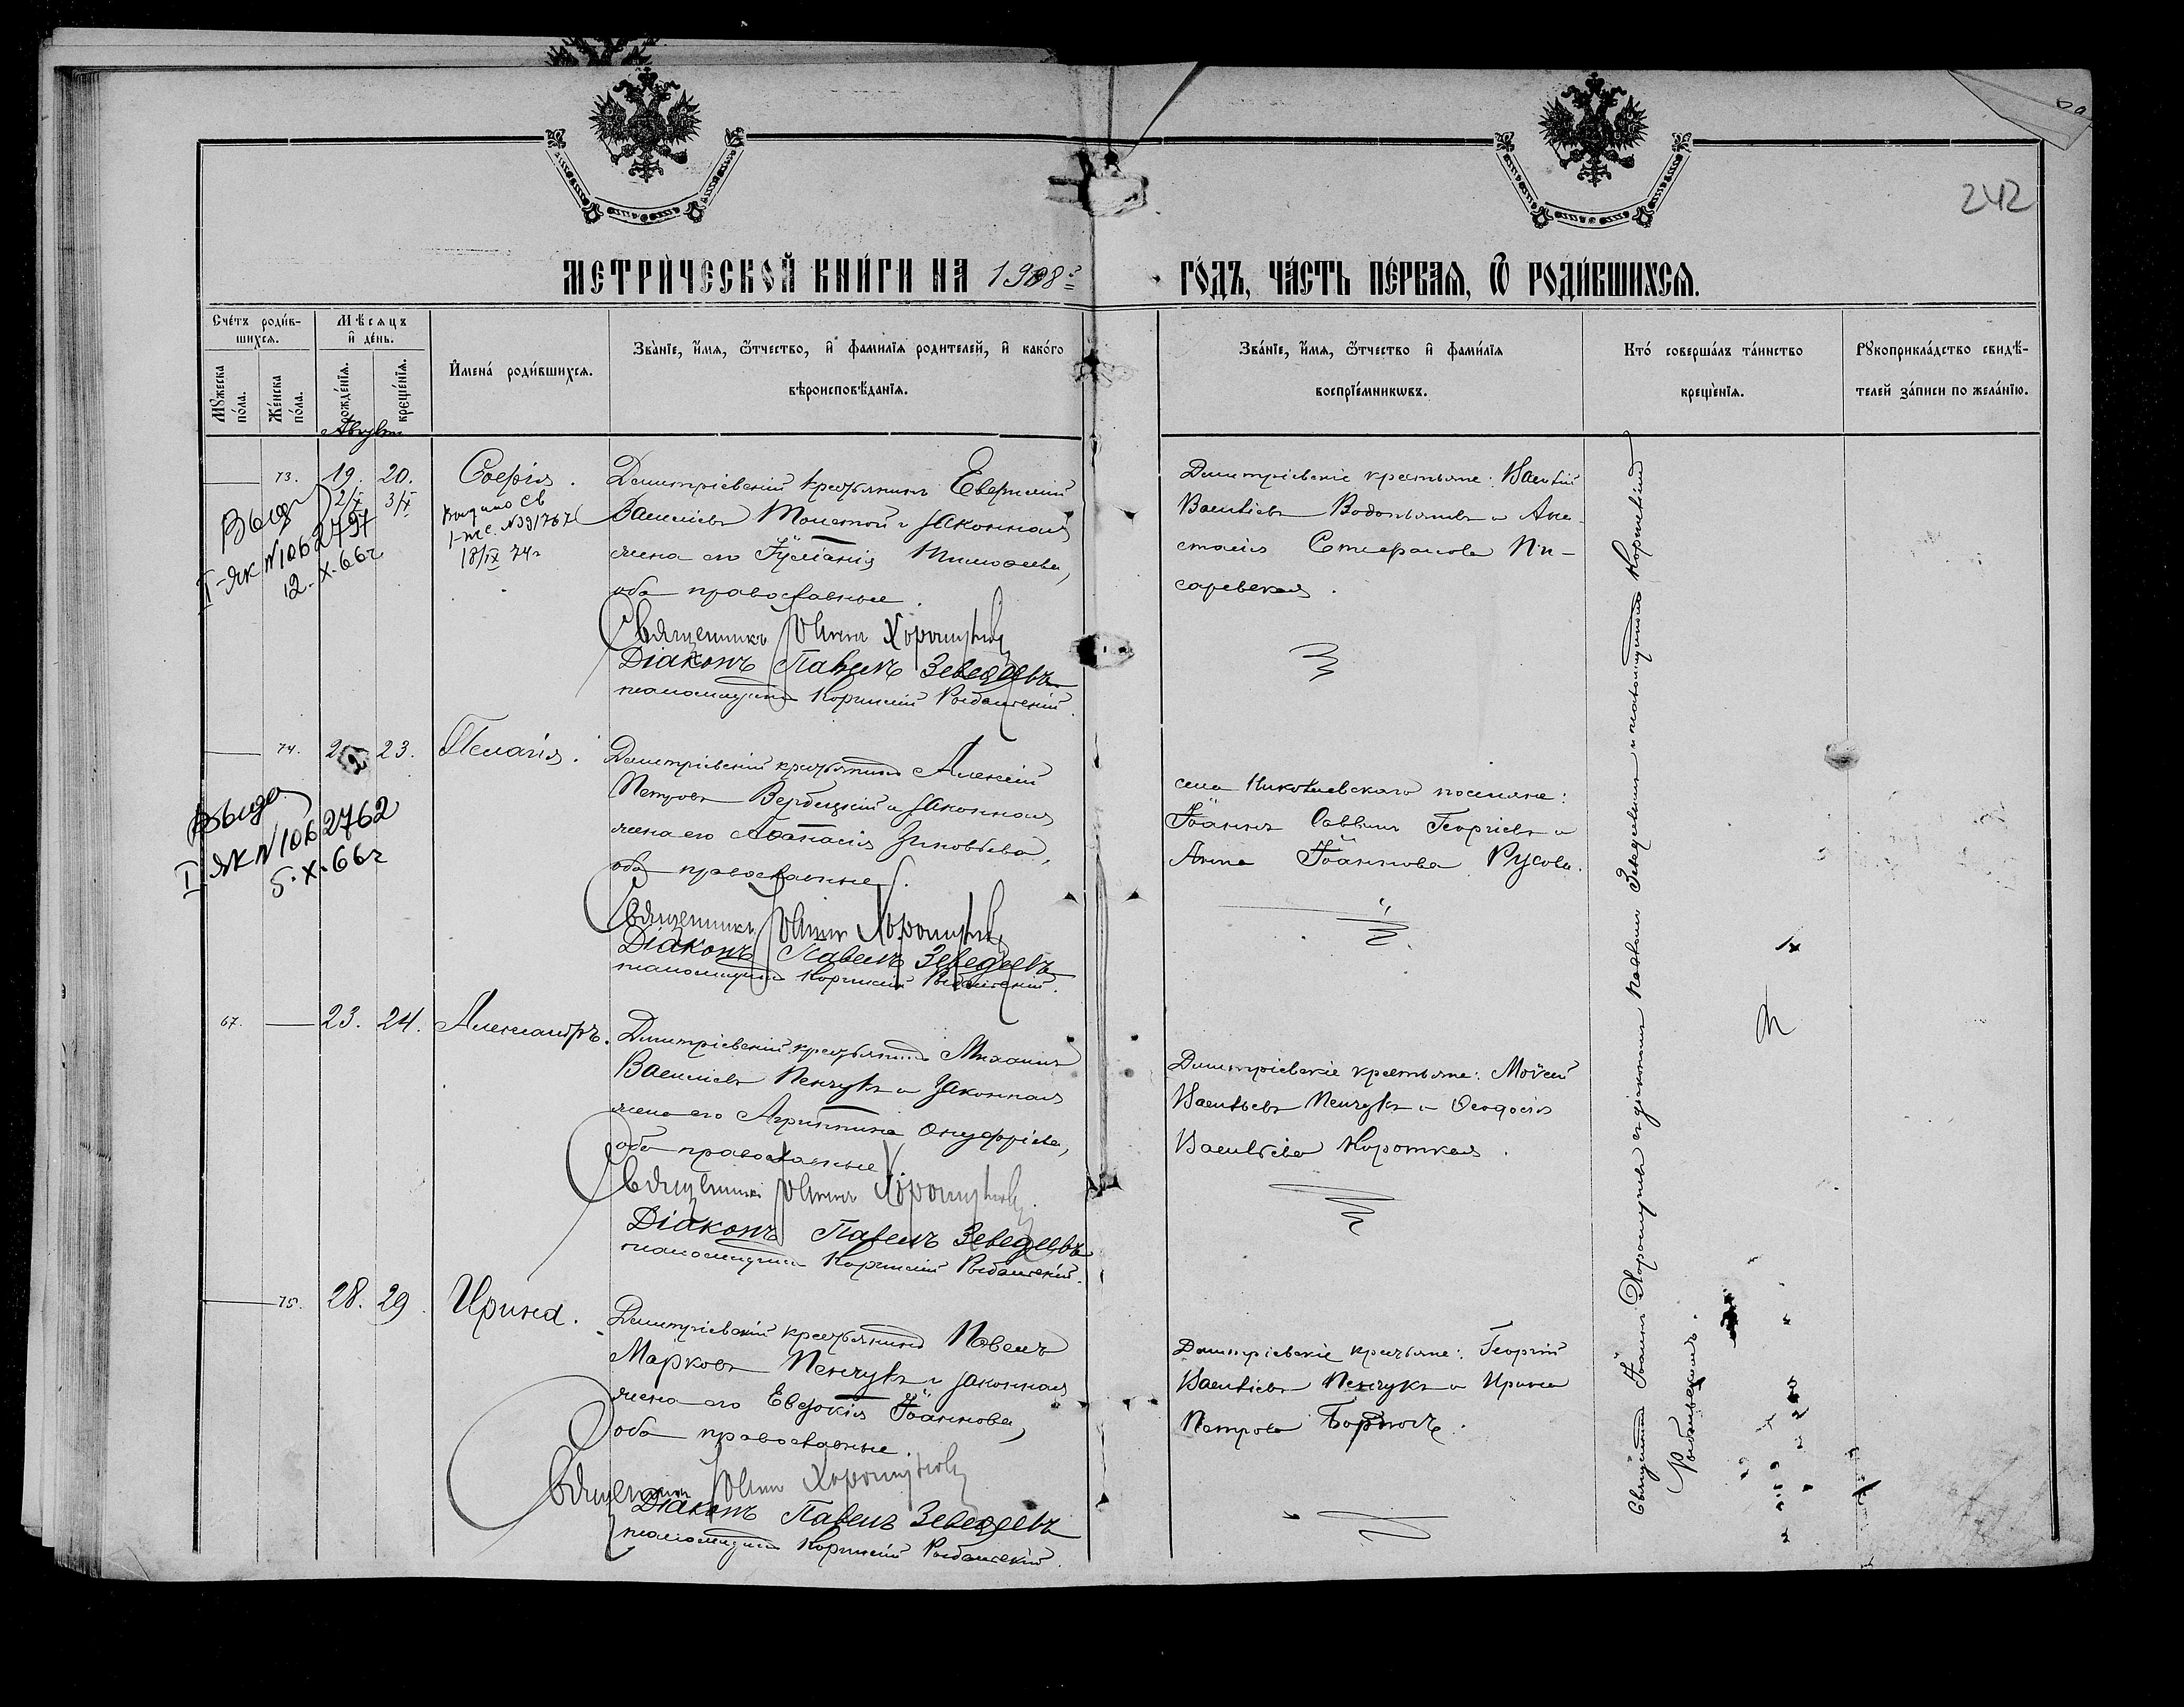 242
МЕТРИ́ЧЕСКОЙ КНИ́ГИ НА 1908 г.
ГО́ДЪ, ЧА́СТЬ ПЕ́РВАѦ, Ѽ РОДИ́ВШИХСѦ.
Сче́тъ роди́в-
шихсѧ.
Мꙋ́жеска по́ла.
Же́нска по́ла.
Мѣ́сѧцъ
и҆ де́нь.
рожде́нїѧ.
креще́нїѧ.
И҆мена̀ роди́вшихсѧ.
Зва́нїе, и҆́мѧ, ѻ҆́тчество, и҆ фами́лїѧ роди́телей, и҆ како́го
вѣроисповѣ́данїѧ.
Зва́нїе, и҆́мѧ, ѻ҆́тчество и҆ фами́лїѧ
воспрїе́мникѡвъ.
Кто̀ соверша́лъ та́инство
креще́нїѧ.
Рꙋкоприкла́дство свидѣ́-
телей за́писи по жела́нїю.
Августъ
73. 19. 20. Софія.
2/IX 3/IX
Выдано св
I-жс. № 391767
18/IX 74г
II-ЯК № 1062797
12.X.66г
Дмитріевскій крестьянинъ Евгеній
Васильевъ Толстой и законная
жена его Іуліанія Тимофеева,
оба православные.
Священникъ Іоаннъ Хорошуновъ
Діаконъ Павелъ Зеведеевъ
псаломщикъ Корнилій Рыбальскій.
Дмитріевскіе крестьяне: Василій
Васильевъ Водопьяновъ и Ана-
стасія Стефанова Пи-
саревская.
74. 22 23. Пелагія.
Выда
I-ЯК № 1062762
5.X.66г
Дмитріевскій крестьянинъ Алексій
Петровъ Вербицкій и законная
жена его Афанасія Зиновьева,
оба православные.
Священникъ Іоаннъ Хорошуновъ
Діаконъ Павелъ Зеведеевъ
псаломщикъ Корнилій Рыбальскій.
села Николаевскаго поселяне:
Іоаннъ Саввинъ Георгіевъ и
Анна Іоаннова Русова.
67. 23. 24. Александръ.
Дмитріевскій крестьянинъ Михаилъ
Васильевъ Пенчукъ и законная
жена его Агриппина Онуфріева,
оба православные.
Священникъ Іоаннъ Хорошуновъ
Діаконъ Павелъ Зеведеевъ
псаломщикъ Корнилій Рыбальскій.
Дмитріевскіе крестьяне: Моѵсей
Васильевъ Пенчукъ и Феодосія
Васильева Короткая.
75. 28. 29. Ирина.
Дмитріевскій крестьянинъ Павелъ
Марковъ Пенчукъ и законная
жена его Евдокія Іоаннова,
оба православные.
Священникъ Іоаннъ Хорошуновъ
Діаконъ Павелъ Зеведеевъ
псаломщикъ Корнилій Рыбальскій.
Дмитріевскіе крестьяне: Георгій
Васильевъ Пенчукъ и Ирина
Петрова
Священникъ Іоаннъ Хорошуновъ съ діакономъ Павломъ Зеведеевымъ и псаломщикомъ Корниліемъ
Рыбальскимъ.